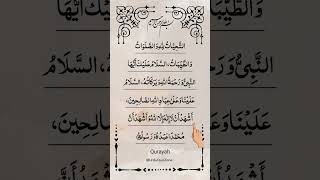 التَّحِيَّاتُ لِلّٰهِ وَالصَّلَوَاتُ
وَالطَّيِّبَاتُ، السَّلَامُ عَلَيْكَ أَيُّهَا
النَّبِيُّ وَرَحْمَةُ اللّٰهِ وَبَرَكَاتُهُ، السَّلَامُ
عَلَيْنَا وَعَلَىٰ عِبَادِ اللّٰهِ الصَّالِحِينَ،
أَشْهَدُ أَنْ لَا إِلٰهَ إِلَّا اللّٰهُ وَأَشْهَدُ أَنَّ
مُحَمَّدًا عَبْدُهُ وَرَسُولُهُ
Qurayah